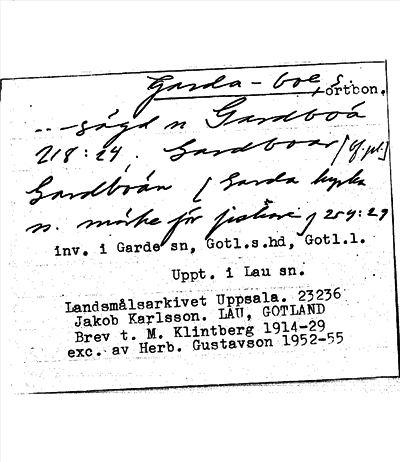 Garda-boe s. ortbon.
..-sågd n Gardboå
218:24. Gardboar [of. pl.]
Gardboán [Garda kyrka
n. märke för fiskare] 254:29
inv. i Garde sn, Gotl.s.hd, Gotl.l.
Uppt. i Lau sn.
Landsmålsarkivet Uppsala. 23236
Jakob Karlsson. LAU, GOTLAND
Brev t. M. Klintberg 1914-29
exc. av Herb. Gustavson 1952-55